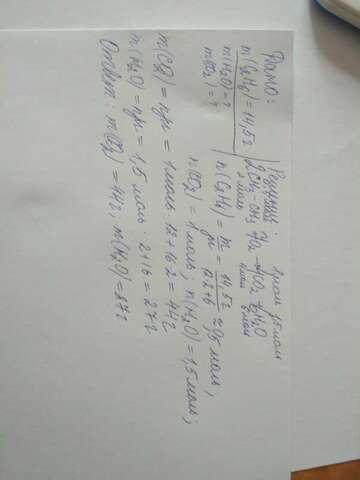 Дано:
m(C₂H₆)=14,5г
m(H₂O)=?
m(CO₂)=?
Решение:
1моль 1,5моль
2CH₃-CH₃ 7O₂ → 4CO₂ + 6H₂O
2моль 4моль 6моль
n(C₂H₆) = m/μ = 14,5г/12·2+6 ≈ 0,5 моль;
n(CO₂) = 1моль; n(H₂O) = 1,5моль;
m(CO₂) = nμ = 1моль · 12+16·2 = 44г
m(H₂O) = nμ = 1,5моль · 2+16 = 27г
Ответ: m(CO₂) = 44г; m(H₂O) = 27г